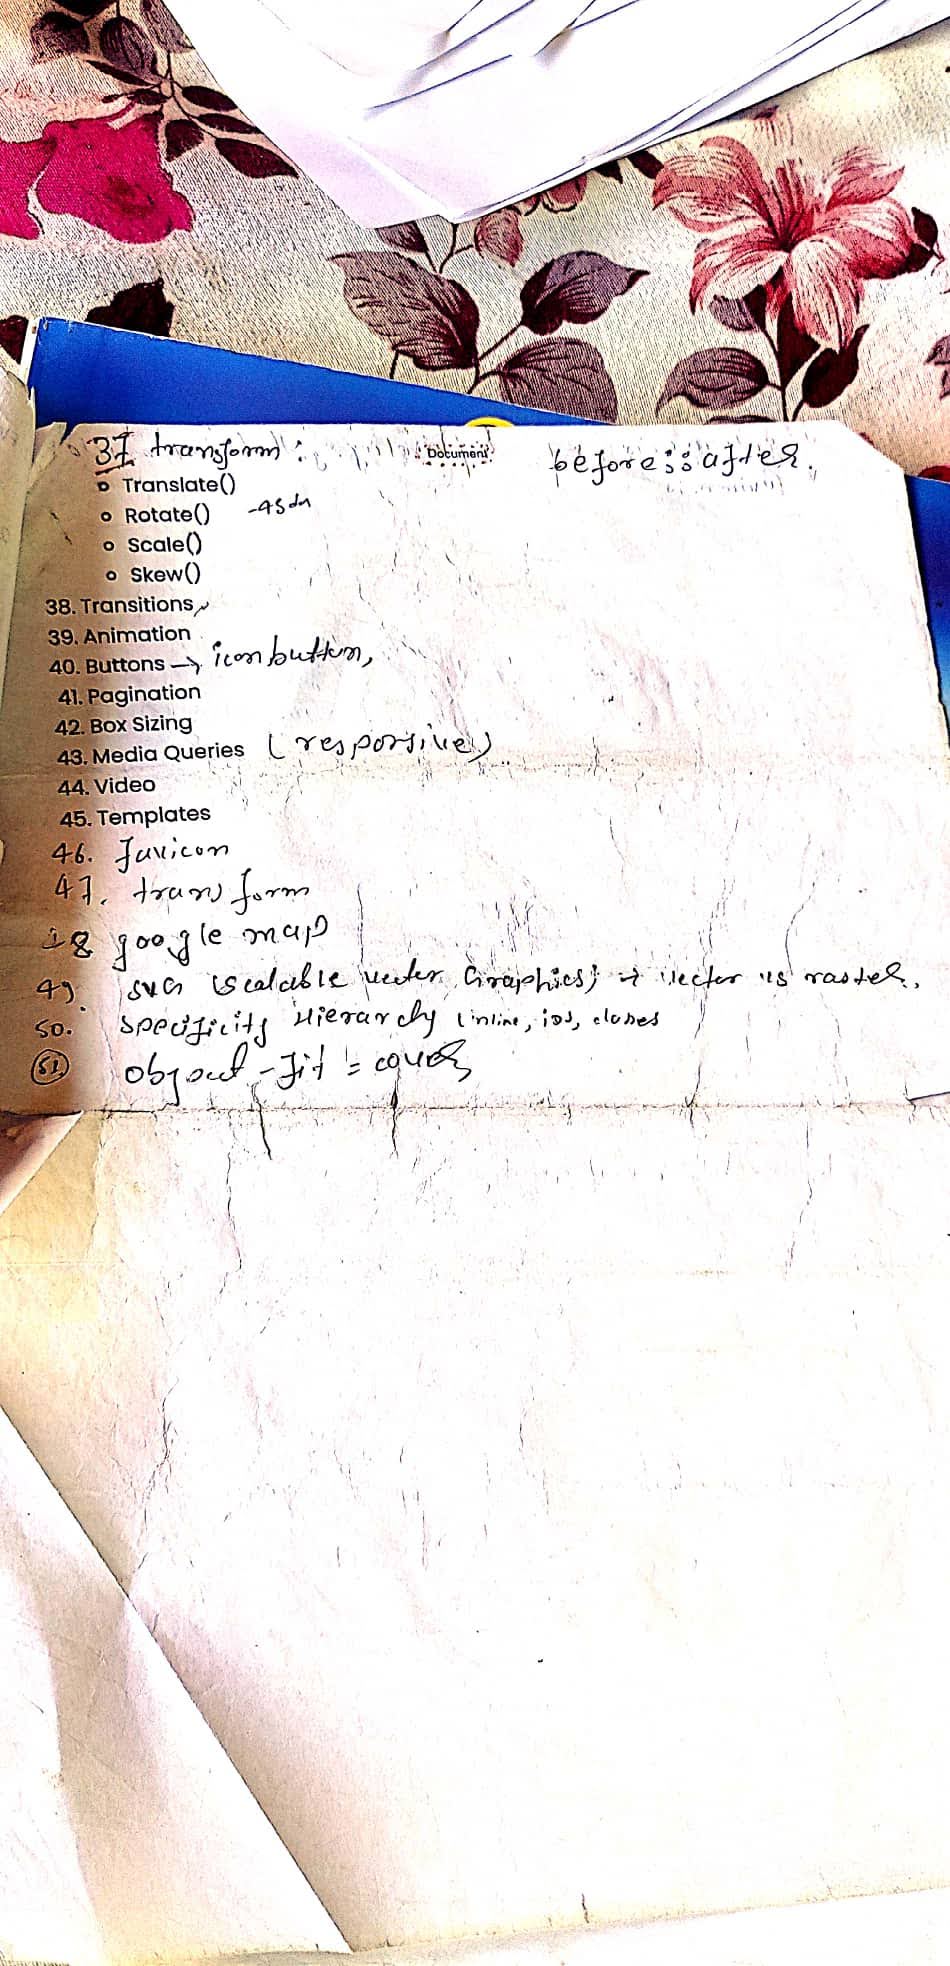 37. transform :
Document
before :: after.
Translate()
Rotate() -45de
Scale()
Skew()
38. Transitions
39. Animation
40. Buttons → icon button,
41. Pagination
42. Box Sizing
43. Media Queries (responsive)
44. Video
45. Templates
46. Favicon
47. transform
48 google map
49. SVG (Scalable vector Graphics) → Vector vs raster.
50. Specificity Hierarchy (inline, ids, classes
51 object-fit : cover